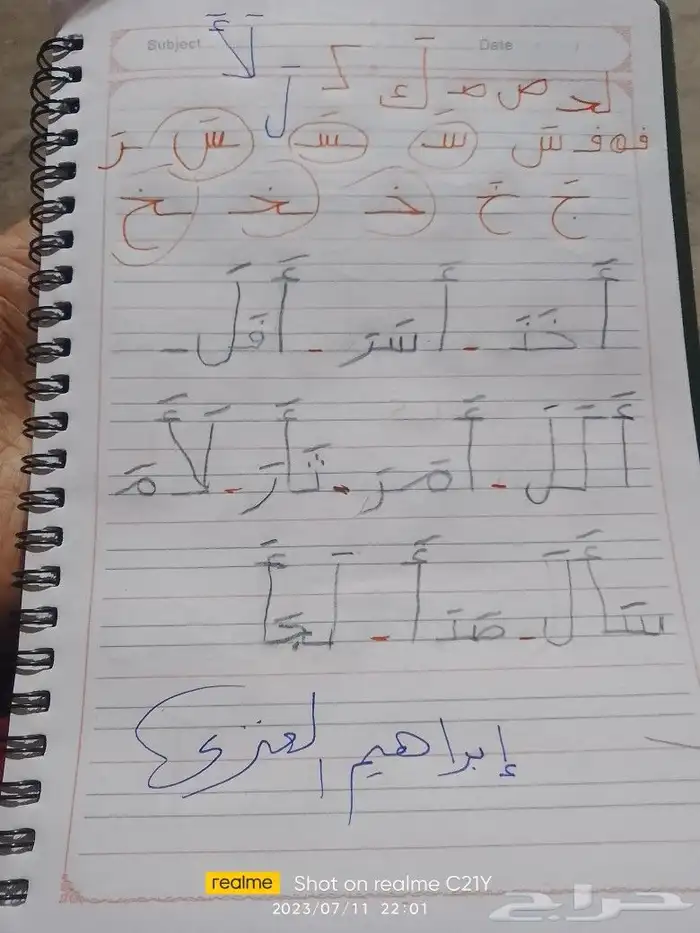 Subject Date
لَأَ
لَ
لحـ ص صـ
ف فـ سَ سَـ ـسَـ ـسَ رَ
جَ خَ خـ ـخـ ـخ
أَخَذَ - أَسَرَ - أَفَلَ -
أَلَلَ - أَمَرَ - ثَأَرَ - لَأَمَ
سَأَلَ - صَدَأَ - لَجَأَ
إبراهيم العنزي
realme Shot on realme C21Y
2023/07/11 22:01
حراج